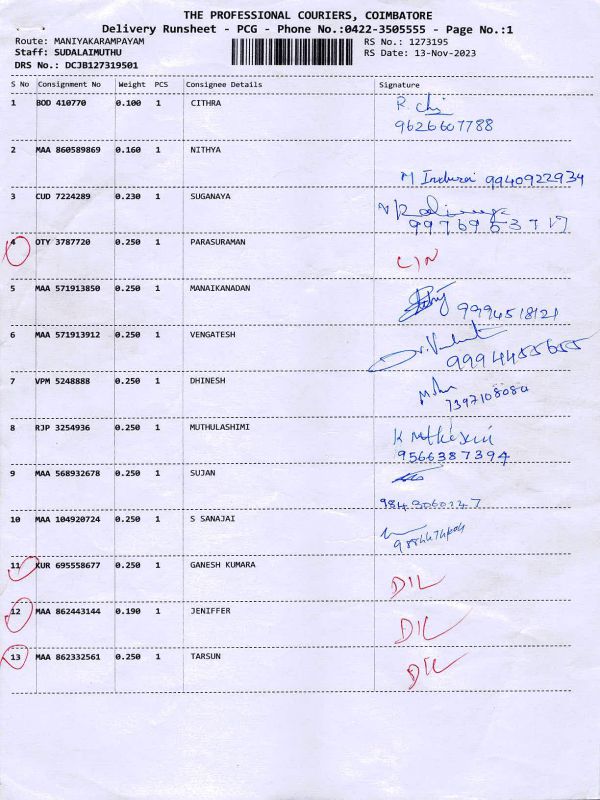 THE PROFESSIONAL COURIERS, COIMBATORE
Delivery Runsheet - PCG - Phone No.:0422-3505555 - Page No.:1
Route: MANIYAKARAMPAYAM RS No.: 1273195
Staff: SUDALAIMUTHU RS Date: 13-Nov-2023
DRS No.: DCJB127319501
S No Consignment No Weight PCS Consignee Details Signature
1 BOD 410770 0.100 1 CITHRA
9626607788
2 MAA 860589869 0.160 1 NITHYA
9940922934
3 CUD 7224289 0.230 1 SUGANAYA
4 OTY 3787720 0.250 1 PARASURAMAN
5 MAA 571913850 0.250 1 MANAIKANADAN
9994518121
6 MAA 571913912 0.250 1 VENGATESH
9994455655
7 VPM 5248888 0.250 1 DHINESH
8 RJP 3254936 0.250 1 MUTHULASHIMI
9566387394
9 MAA 568932678 0.250 1 SUJAN
10 MAA 104920724 0.250 1 S SANAJAI
11 KUR 695558677 0.250 1 GANESH KUMARA
DIL
12 MAA 862443144 0.190 1 JENIFFER
DIL
13 MAA 862332561 0.250 1 TARSUN
DIL